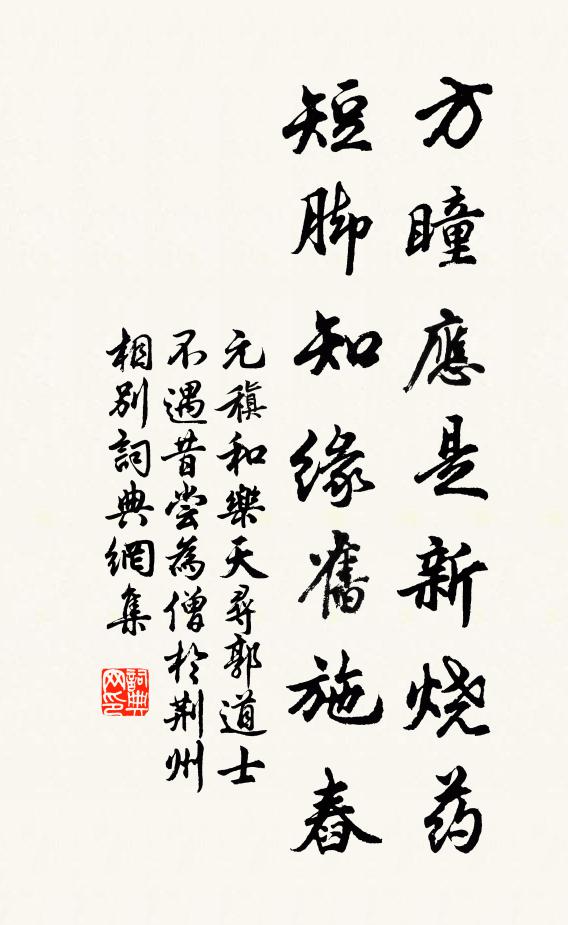 方瞳應是新烧药
短脚知缘舊施舂
元稹和樂天尋郭道士
不遇昔尝為僧於荆州
相别詞典網集
詞典
网印